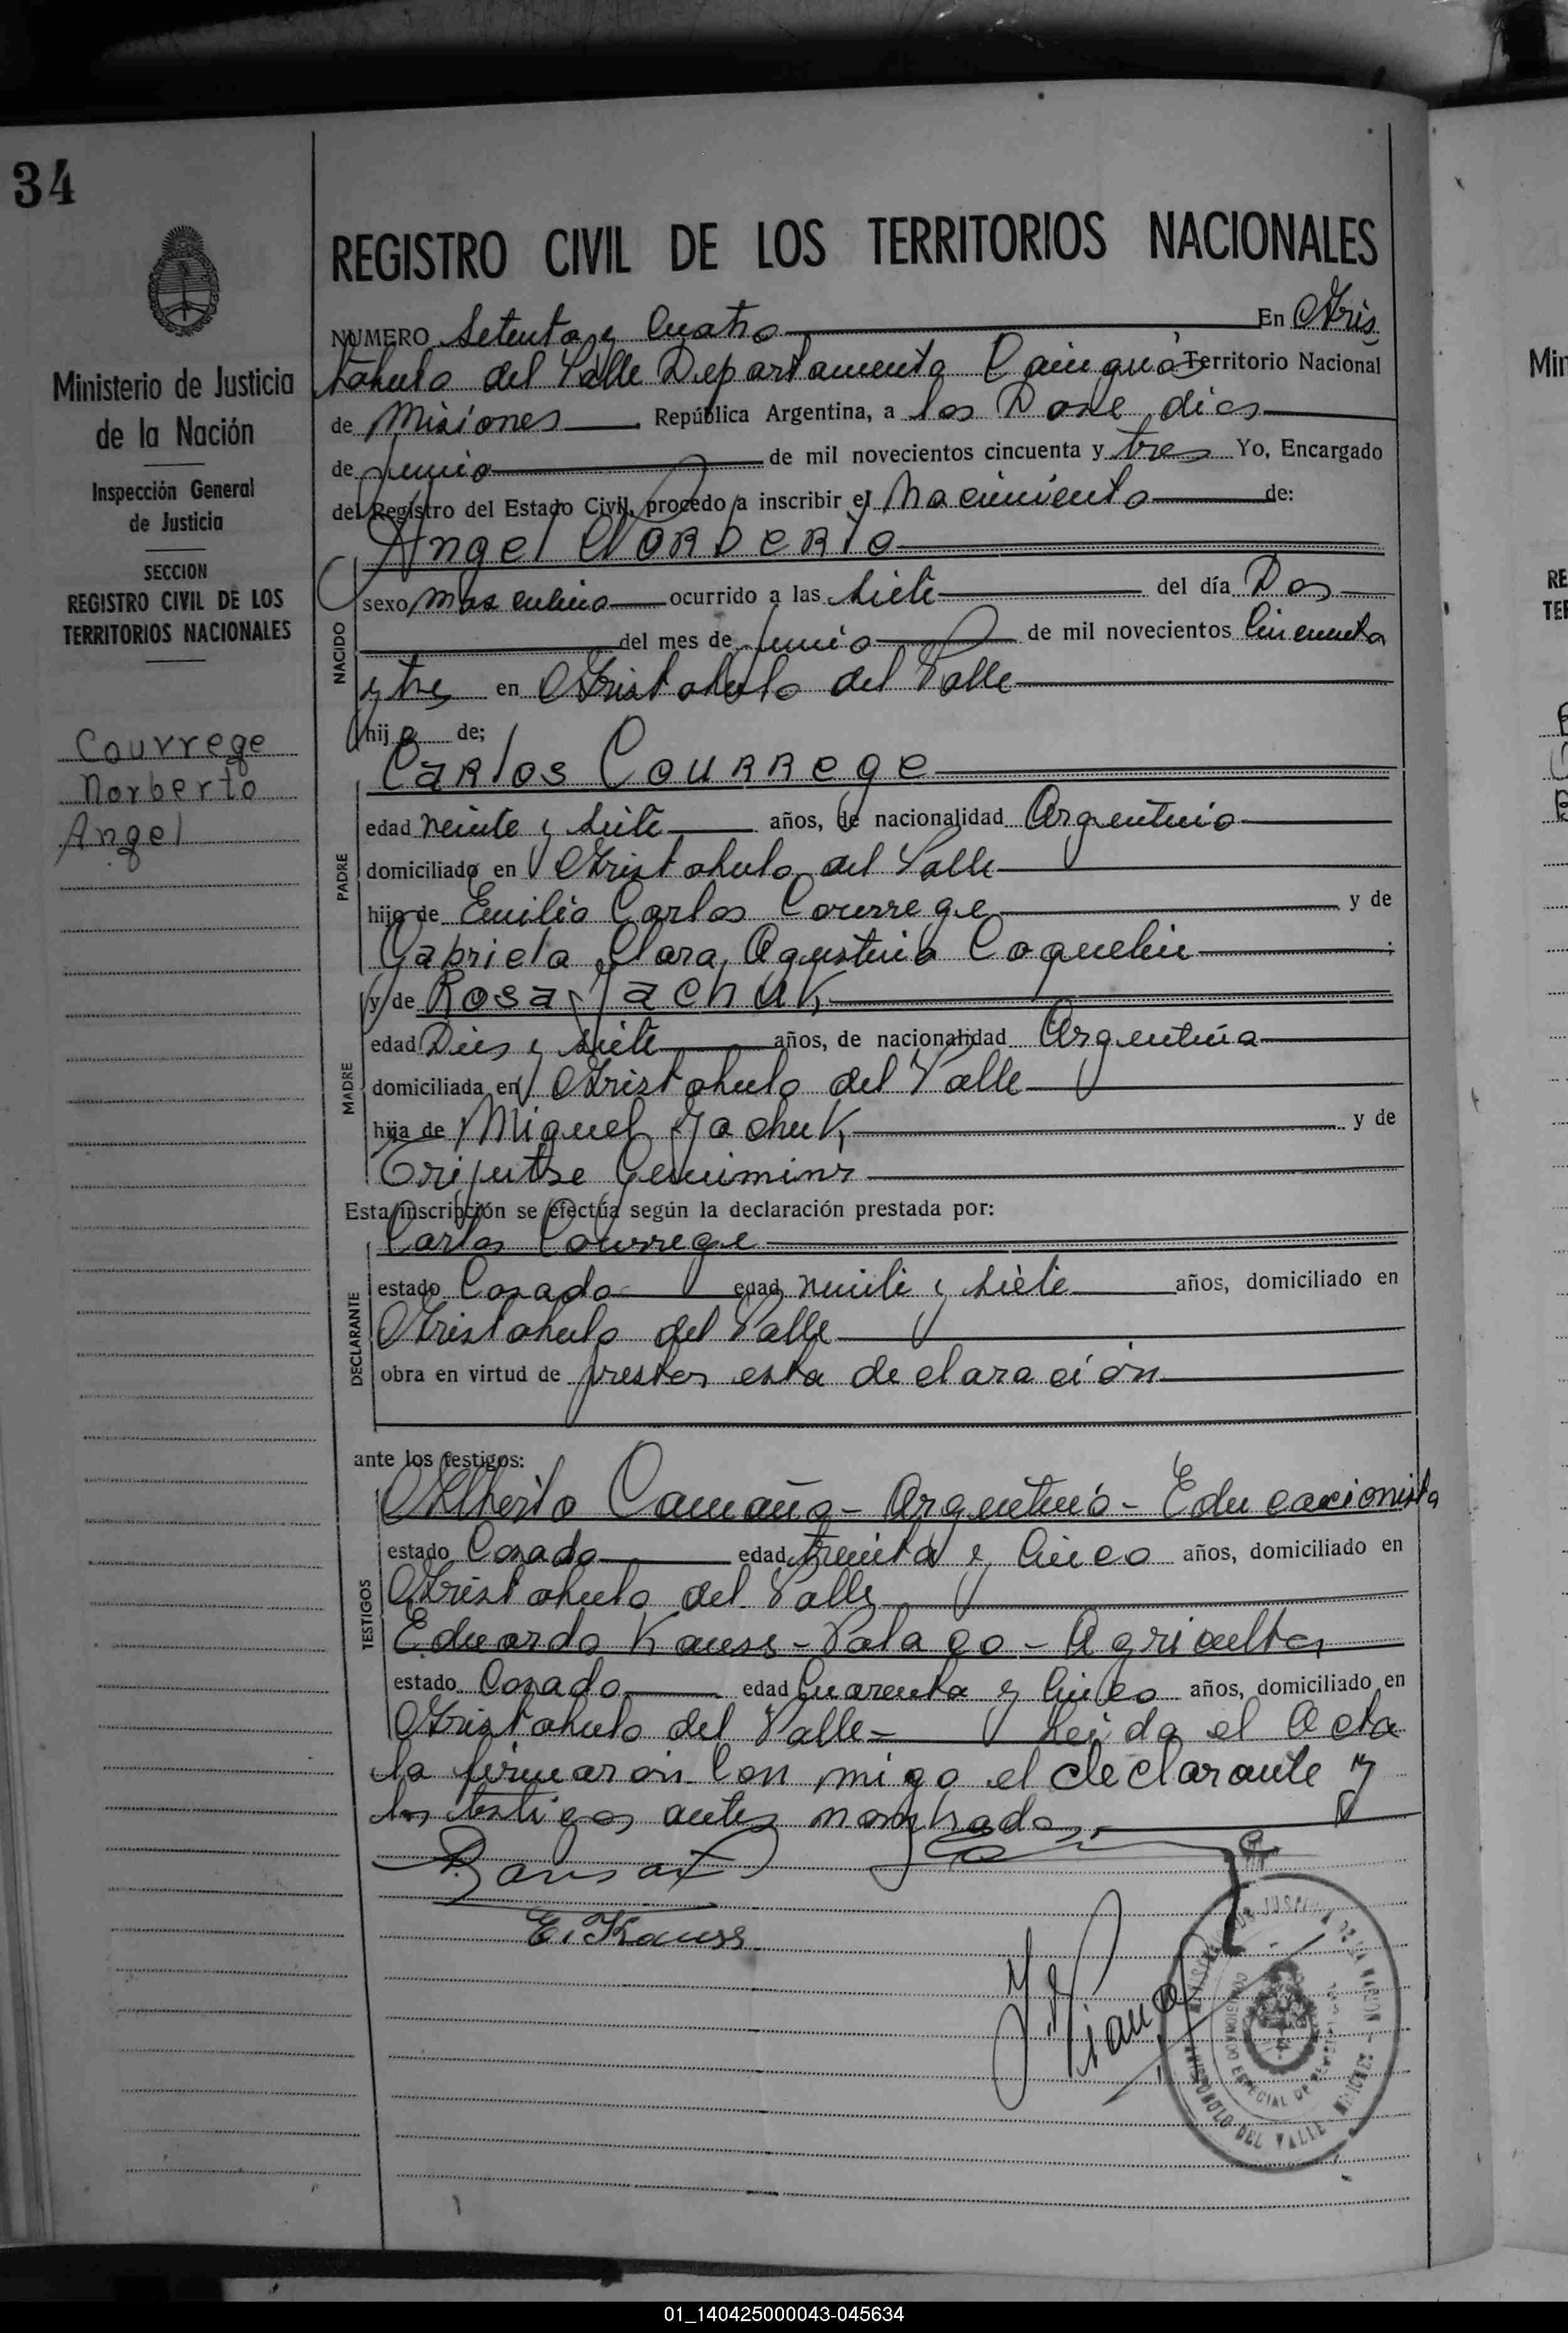 34
Ministerio de Justicia
de la Nación
Inspección General
de Justicia
SECCION
REGISTRO CIVIL DE LOS
TERRITORIOS NACIONALES
Courrege
Norberto
Angel
REGISTRO CIVIL DE LOS TERRITORIOS NACIONALES
NUMERO Setenta y Cuatro En Aris
tobulo del Valle Departamento Cainguás Territorio Nacional
de Misiones República Argentina, a los Dose dias
de Junio de mil novecientos cincuenta y tres Yo, Encargado
del Registro del Estado Civil, procedo a inscribir el Nacimiento de:
Angel NORBERTO
NACIDO
sexo masculino ocurrido a las siete del día Dos
del mes de Junio de mil novecientos Cincuenta
y tres en Aristobulo del Valle
hijo de;
CARLOS COURREGE
PADRE
edad veinte y siete años, de nacionalidad Argentino
domiciliado en Aristobulo del Valle
hijo de Emilio Carlos Courrege y de
Gabriela Clara Agustina Coquelin
y de Rosa Jachuk
MADRE
edad Dies y siete años, de nacionalidad Argentina
domiciliada en Aristobulo del Valle
hija de Miguel Jachuk y de
Esta inscripción se efectúa según la declaración prestada por:
Carlos Courrege
DECLARANTE
estado Casado edad veinte y siete años, domiciliado en
Aristobulo del Valle
obra en virtud de prestar esta declaración
ante los testigos:
TESTIGOS
Alberto Camaño - Argentino - Educacionista
estado Casado edad treinta y Cinco años, domiciliado en
Aristobulo del Valle
Eduardo Kauss - Polaco - Agricultor
estado Casado edad Cuarenta y Cinco años, domiciliado en
Aristobulo del Valle = Leida el Acta
la firmaron Con migo el declarante y
los testigos antes nombrados.-
E. Kauss
ARISTOBULO DEL VALLE - MISIONES
01_140425000043-045634